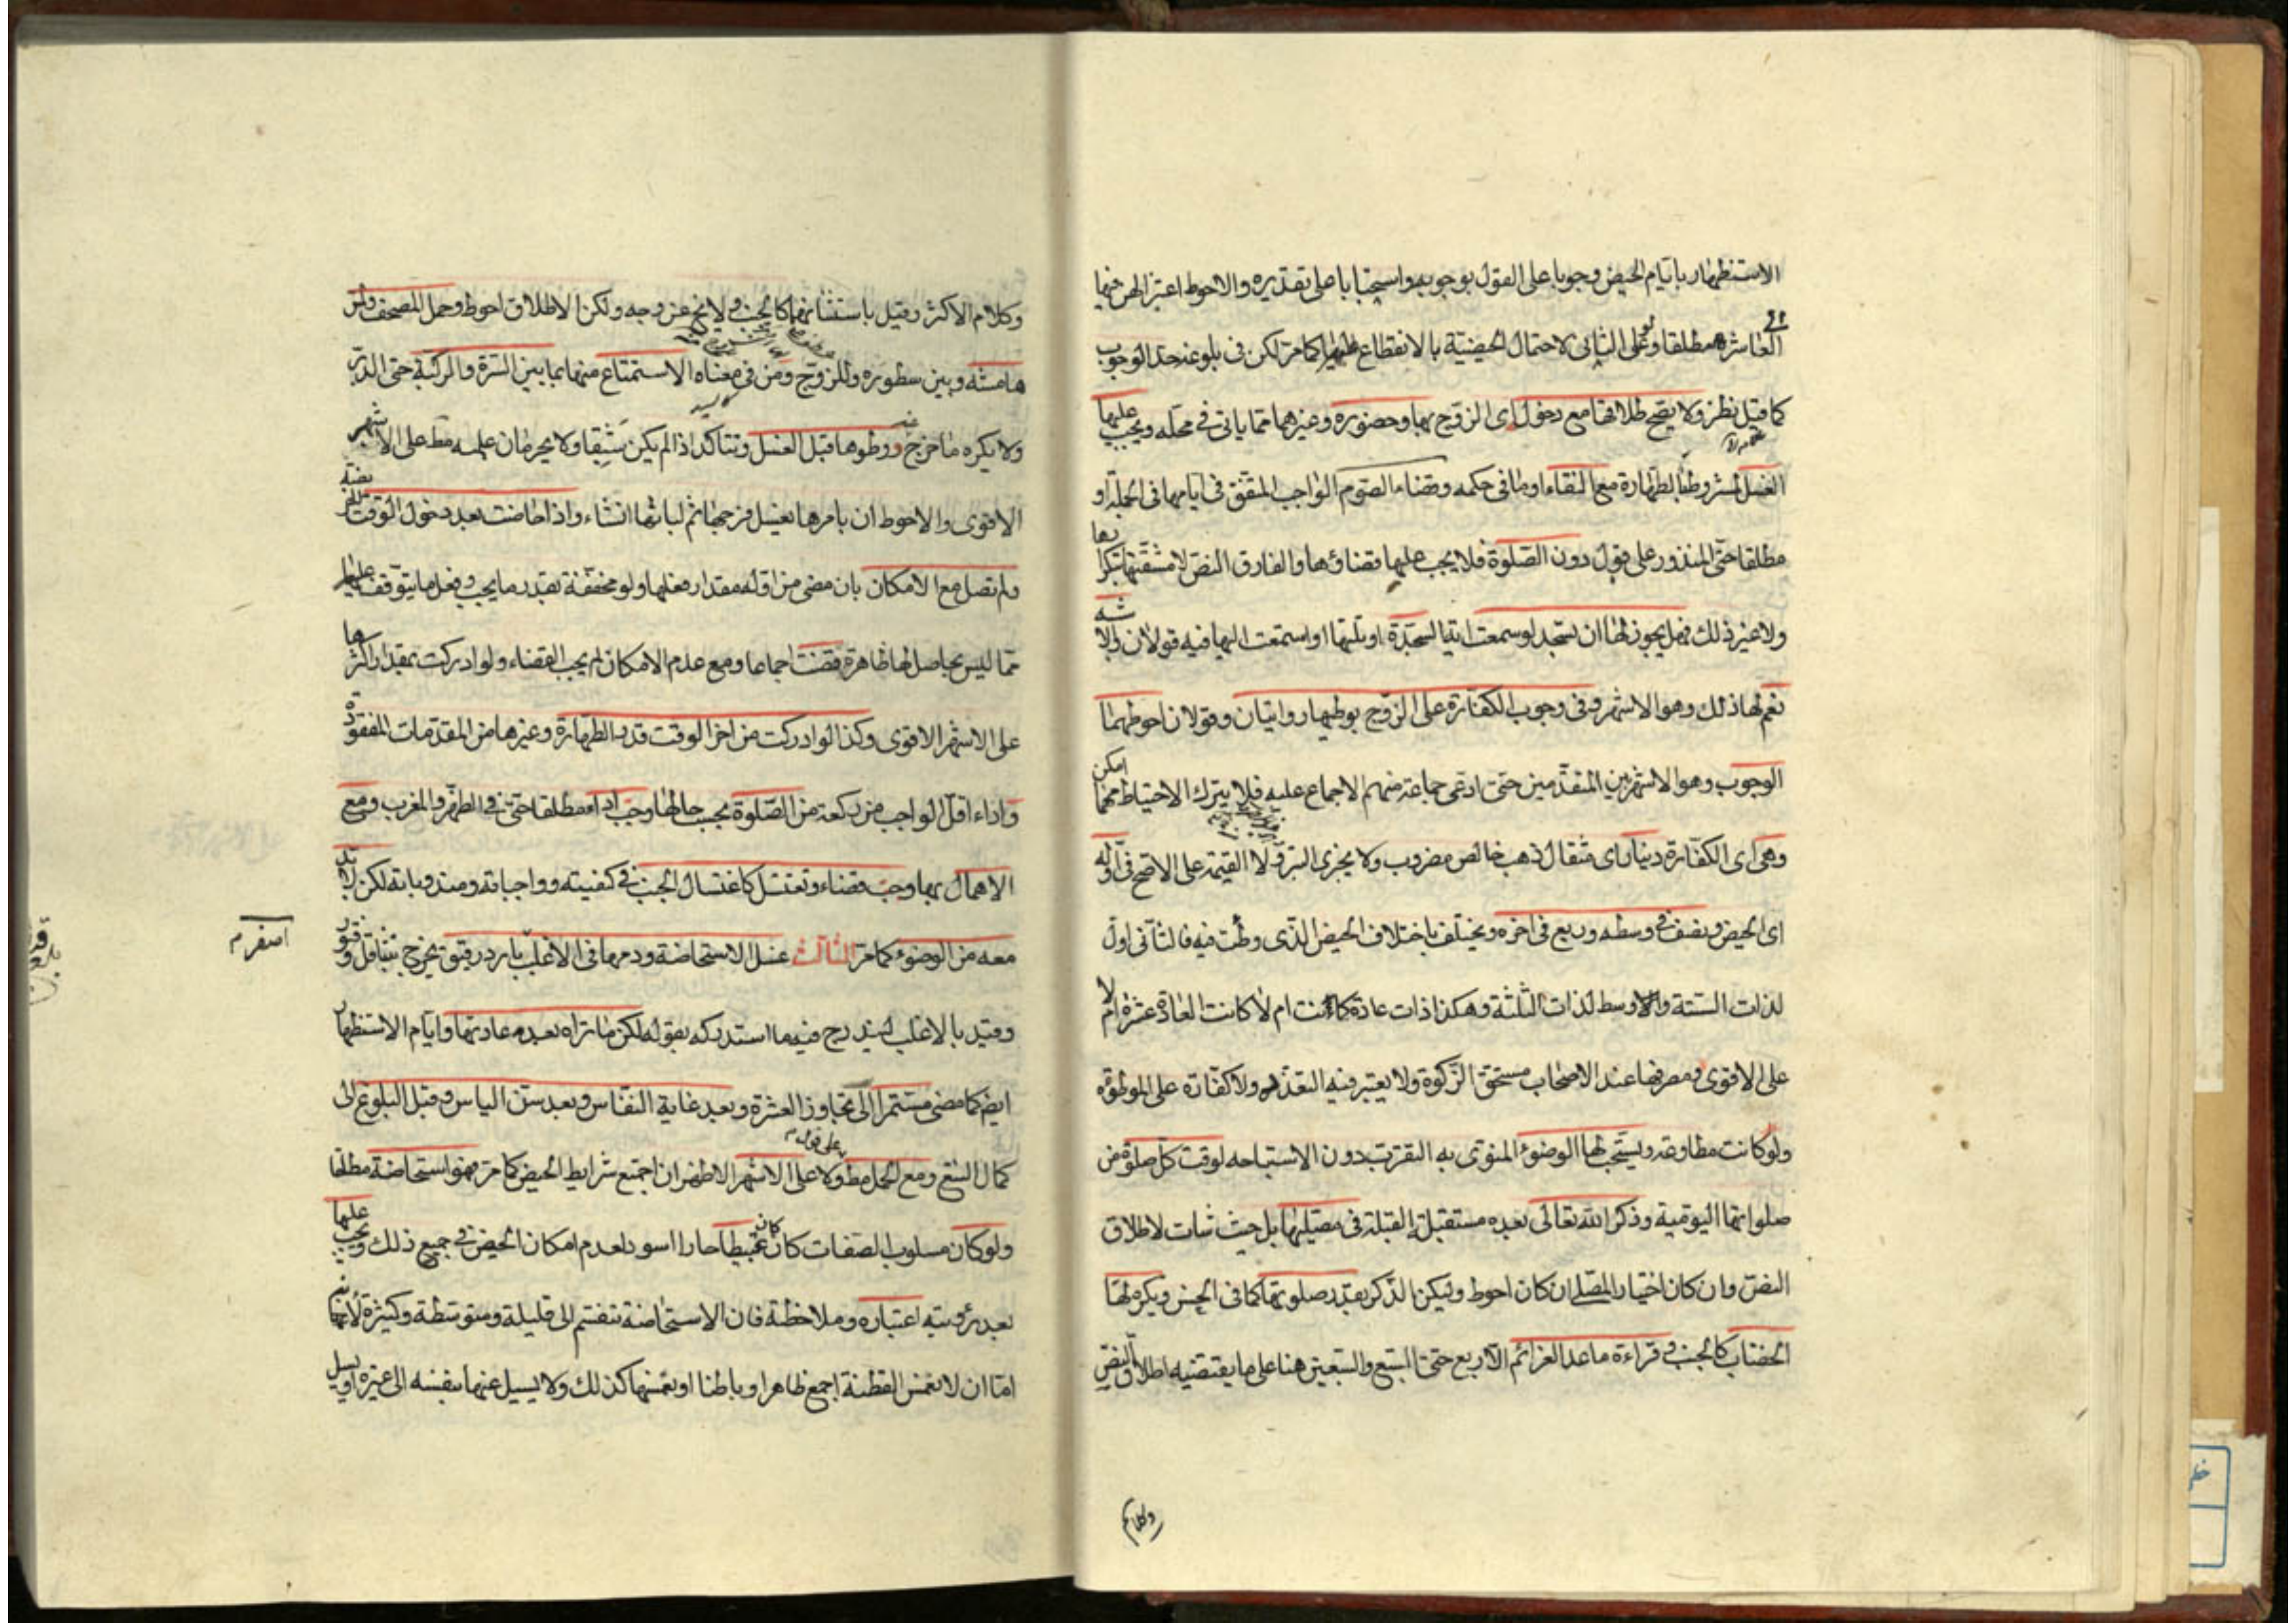 الاستظهار بايّام الحيض وجوبا على القول بوجوبه واستحبابا على تقديره والاحوط اعتزالهن فيها
الى
العاشرة مطلقا وعلى الثاني لاحتمال الحيضية بالانقطاع عليها كما مرّ لكن في بلوغه حدّ الوجوب
كما قيل نظر ولا يصح طلاقها مع دخول اى الزوج بها وحضوره وغيرهما مما ياتى في محله ويجب عليها
الغسل لمشروط بالطهارة مع النقاء او ما في حكمه وقضاء الصّوم الواجب المتفق في ايامها في الجملة او
مطلقا حتى المنذور على قول دون الصّلوة فلا يجب عليها قضاؤها والفارق النصّ لا مشقتها بتكررها
ولا غير ذلك فهل يجوز لها ان تسجد لو سمعت اية السجدة او تلتها او استمعت اليها فيه قولان والاشبه
نعم لها ذلك وهو الاشهر وفى وجوب الكفارة على الزوج بوطيها روايتان وقولان احوطهما
الوجوب وهو الاشهر بين المتقدمين حتى ادعى جماعة منهم الاجماع عليه فلا يترك الاحتياط مهما امكن
وهى اى الكفارة دينار اى مثقال ذهب خالص مضروب ولا يجزى التبر ولا القيمة على الاصح في اوله
اى الحيض ونصف في وسطه وربع في اخره ويختلف باختلاف الحيض الذى وطئت فيه فالثانى اول
لذات الستة والاوسط لذات الثلثة وهكذا ذات عادة كانت ام لا كانت العادة عشرة ام لا
على الاقوى ومصرفها عند الاصحاب مستحق الزكوة ولا يعتبر فيه التعدد ولا كفارة على الموطوءة
ولو كانت مطاوعة ويستحب لها الوضوء المنوى به التقرب دون الاستباحه لوقت كل صلوة من
صلواتها اليومية وذكر الله تعالى بعده مستقبلة القبلة في مصليها بل حيث شاءت لاطلاق
النصّ وان كان اختيار المصلى ان كان احوط وليكن الذكر بقدر صلوتها كما في الحسن ويكره لها
الخضاب كالجنب وقراءة ما عدا العزائم الاربع حتى السبع والسبعين هنا على ما يقتضيه اطلاق النص
وكلام
وكلام الاكثر وقيل باستثنائهما كالجنب ولا يخ عن وجه ولكن الاطلاق احوط وحمل المصحف ولمس
هامشه وبين سطوره وللزوج ومن في معناه الاستمتاع منها بما بين السّرة والركبة حتى الدبر
ولا يكره ما خرج عنه ووطوها قبل الغسل وتتاكد اذا لم يكن شبقا ولا يحرمان عليه مط على الاشهر
الاقوى والاحوط ان يامرها بغسل فرجها ثم ليأتها ان شاء واذا حاضت بعد دخول الوقت
ولم تصل مع الامكان بان مضى من اوله مقدار فعلها ولو مخففة بقدر ما يجب وفعل ما يتوقف عليها
مما ليس بحاصل لها ظاهرة قضت اجماعا ومع عدم الامكان لم يجب القضاء ولو ادركت بمقدار اكثرها
على الاشهر الاقوى وكذا لو ادركت من اخر الوقت قدر الطهارة وغيرها من المقدمات المفقودة
واداء اقل الواجب من ركعة من الصّلوة بحسب حالها وجب اداء مطلقا حتى في الظهر والمغرب ومع
الاهمال بها وجب قضاء وتغتسل كاغتسال الجنب في كيفيته وواجباته ومندوباته لكن لابد
معه من الوضوء كما مرّ الثالث غسل الاستحاضة ودمها في الاغلب بارد رقيق يخرج بتثاقل وفتور
اصفر م
وقيد بالاغلب ليندرج فيه ما استدركه بقوله لكن ما تراه بعد عادتها وايام الاستظهار
ايض كما مضى مستمرا الى تجاوز العشرة وبعد غاية النفاس وبعد سنّ الياس وقبل البلوغ الى
على قول م
كمال التسع ومع الحمل مط ولا على الاشهر الاظهر ان اجتمع شرايط الحيض كما مرّ فهو استحاضة مطلقا
ولو كان مسلوب الصفات كان عبيطا حارا اسود لعدم امكان الحيض في جميع ذلك ويجب عليها
بعد رؤيته اعتباره وملاحظة فان الاستحاضة تنقسم الى قليلة ومتوسطة وكثيرة لانها
امّا ان لا تغمس القطنة اجمع ظاهرا وباطنا او تغمسها كذلك ولا يسيل عنها بنفسه الى غيره او يسيل